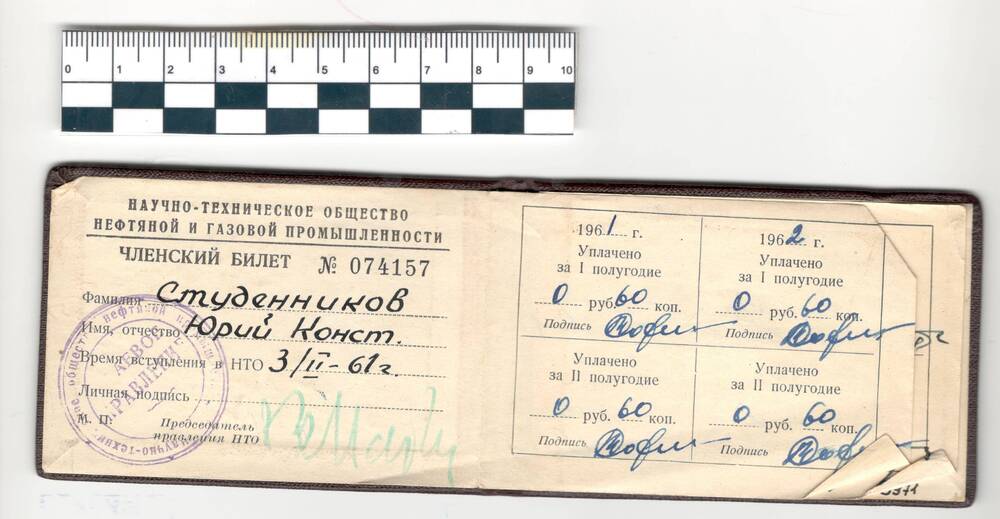 0 1 2 3 4 5 6 7 8 9 10
НАУЧНО-ТЕХНИЧЕСКОЕ ОБЩЕСТВО
НЕФТЯНОЙ И ГАЗОВОЙ ПРОМЫШЛЕННОСТИ
ЧЛЕНСКИЙ БИЛЕТ № 074157
Фамилия Студенников
Имя, отчество Юрий Конст.
Время вступления в НТО 3/II-61г.
Личная подпись
М. П. Председатель
правления НТО
1961 г.
Уплачено
за I полугодие
0 руб. 60 коп.
Подпись
Уплачено
за II полугодие
0 руб. 60 коп.
Подпись
1962 г.
Уплачено
за I полугодие
0 руб. 60 коп.
Подпись
Уплачено
за II полугодие
0 руб. 60 коп.
Подпись